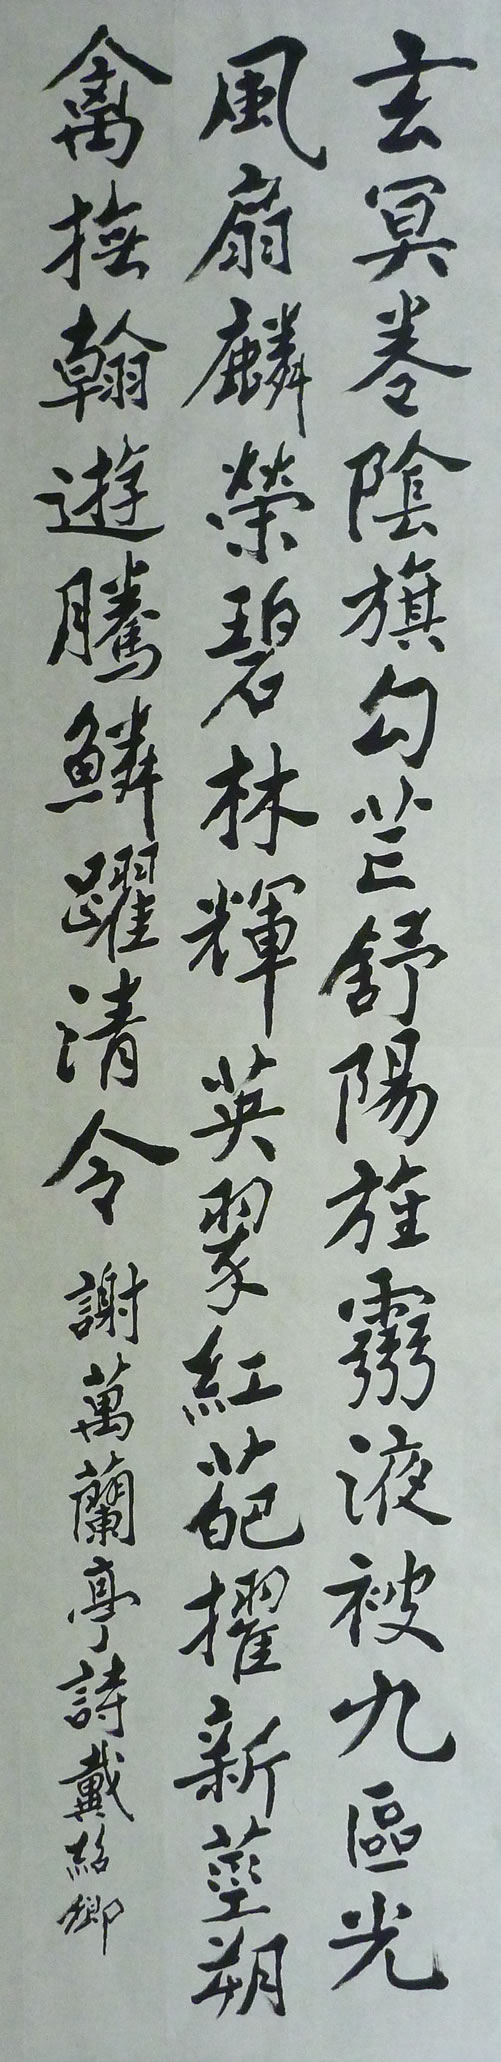 玄冥卷陰旗勾芒舒陽旌靈液被九區光
風扇麟榮碧林輝英翠紅葩擢新莖朔
禽撫翰遊騰鱗躍清令 謝萬蘭亭詩戴紹卿